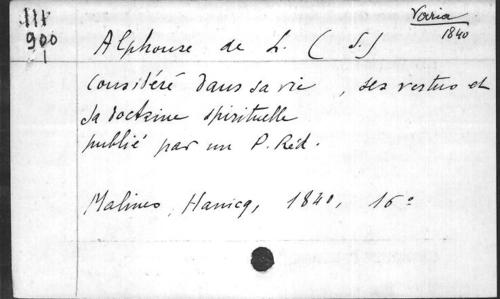 III
900
1
Varia
1840
Alphonse de L. (S.)
Considéré dans sa vie, ses vertus et
sa doctrine spirituelle
publié par un P. Réd.
Malines, Hanicq, 1840, 16°